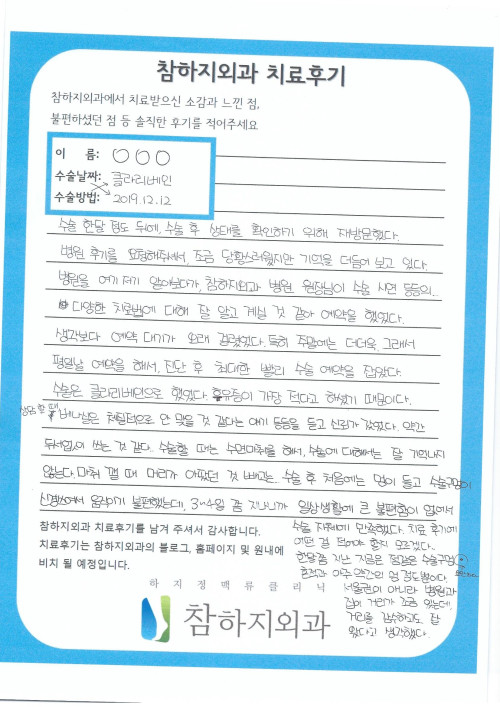 참하지외과 치료후기
참하지외과에서 치료받으신 소감과 느낀 점,
불편하셨던 점 등 솔직한 후기를 적어주세요
이 름: ○○○
수술날짜: 클라리베인
수술방법: 2019.12.12
수술 한달 정도 뒤에, 수술 후 상태를 확인하기 위해 재방문했다.
병원 후기를 요청해주셔서, 조금 당황스러웠지만 기억을 더듬어 보고 있다.
병원을 여기저기 알아보다가, 참하지외과 병원 원장님이 수술 시연 등등의..
다양한 치료법에 대해 잘 알고 계실 것 같아 예약을 했었다.
생각보다 예약 대기가 오래 걸렸었다. 특히 주말에는 더더욱. 그래서
평일날 예약을 해서, 진단 후 최대한 빨리 수술 예약을 잡았다.
수술은 클라리베인으로 했었다. 후유증이 가장 적다고 하셨기 때문이다.
상담할 때 베나실은 체질적으로 안 맞을 것 같다는 얘기 등등을 듣고 신뢰가 갔었다. 약간
두서없이 쓰는 것 같다.. 수술할 때는 수면마취를 해서, 수술에 대해서는 잘 기억나지
않는다. 마취 깰 때 머리가 아팠던 것 빼고는. 수술 후 처음에는 멍이 들고 수술구멍이
신경쓰여서 움직이기 불편했는데, 3~4일 쯤 지나니까 일상생활에 큰 불편함이 없어서
수술 자체에 만족했다. 치료 후기에
어떤 걸 적어야 할지 모르겠다.
한달쯤 지난 지금은 점같은 수술구멍
흔적과 아주 약간의 멍 정도뿐이다.
서울권이 아니라 병원과
집이 거리가 조금 있는데,
거리를 감수하고도 잘
왔다고 생각했다.
참하지외과 치료후기를 남겨 주셔서 감사합니다.
치료후기는 참하지외과의 블로그, 홈페이지 및 원내에
비치 될 예정입니다.
하지정맥류클리닉
참하지외과